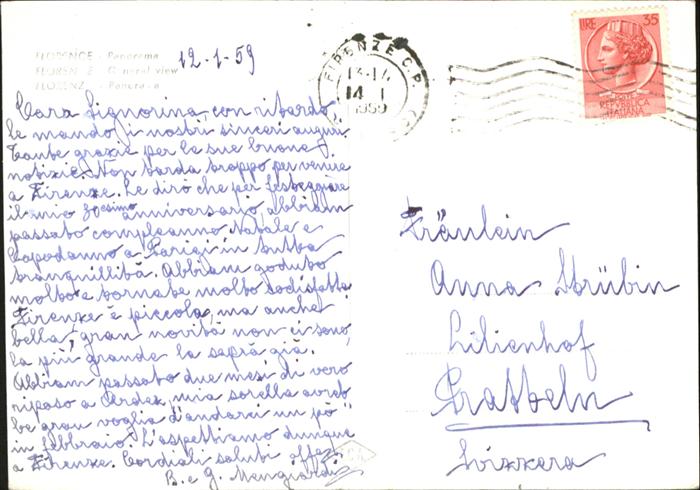 FLORENCE - Panorama
FLORENCE General view
FLORENZ - Panorama
12-1-59
Cara Signorina, con ritardo
le mando i nostri sinceri auguri
Tante grazie per le sue buone
notizie. Non tarda troppo per venire
a Firenze. Le dirò che per festeggiare
il mio 30esimo anniversario abbiam
passato compleanno Natale e
Capodanno a Parigi in tutta
tranquillità. Abbiam goduto
molto e tornate molto sodisfatte
Firenze è piccola, ma anche
bella, gran novità non ci sono,
la più grande la saprà già.
Abbiam passato due mesi di vero
riposo a Ardez, mia sorella avreb
be gran voglia d'andarci un pò
in febbraio. L'aspettiamo dunque
a Firenze. Cordiali saluti aff.
B. e G. Mengiardi
FIRENZE C.P.
13-14
14 1
1959
LIRE 35
REPVBBLICA
ITALIANA
Fräulein
Anna Strübin
Lilienhof
Pratteln
Svizzera